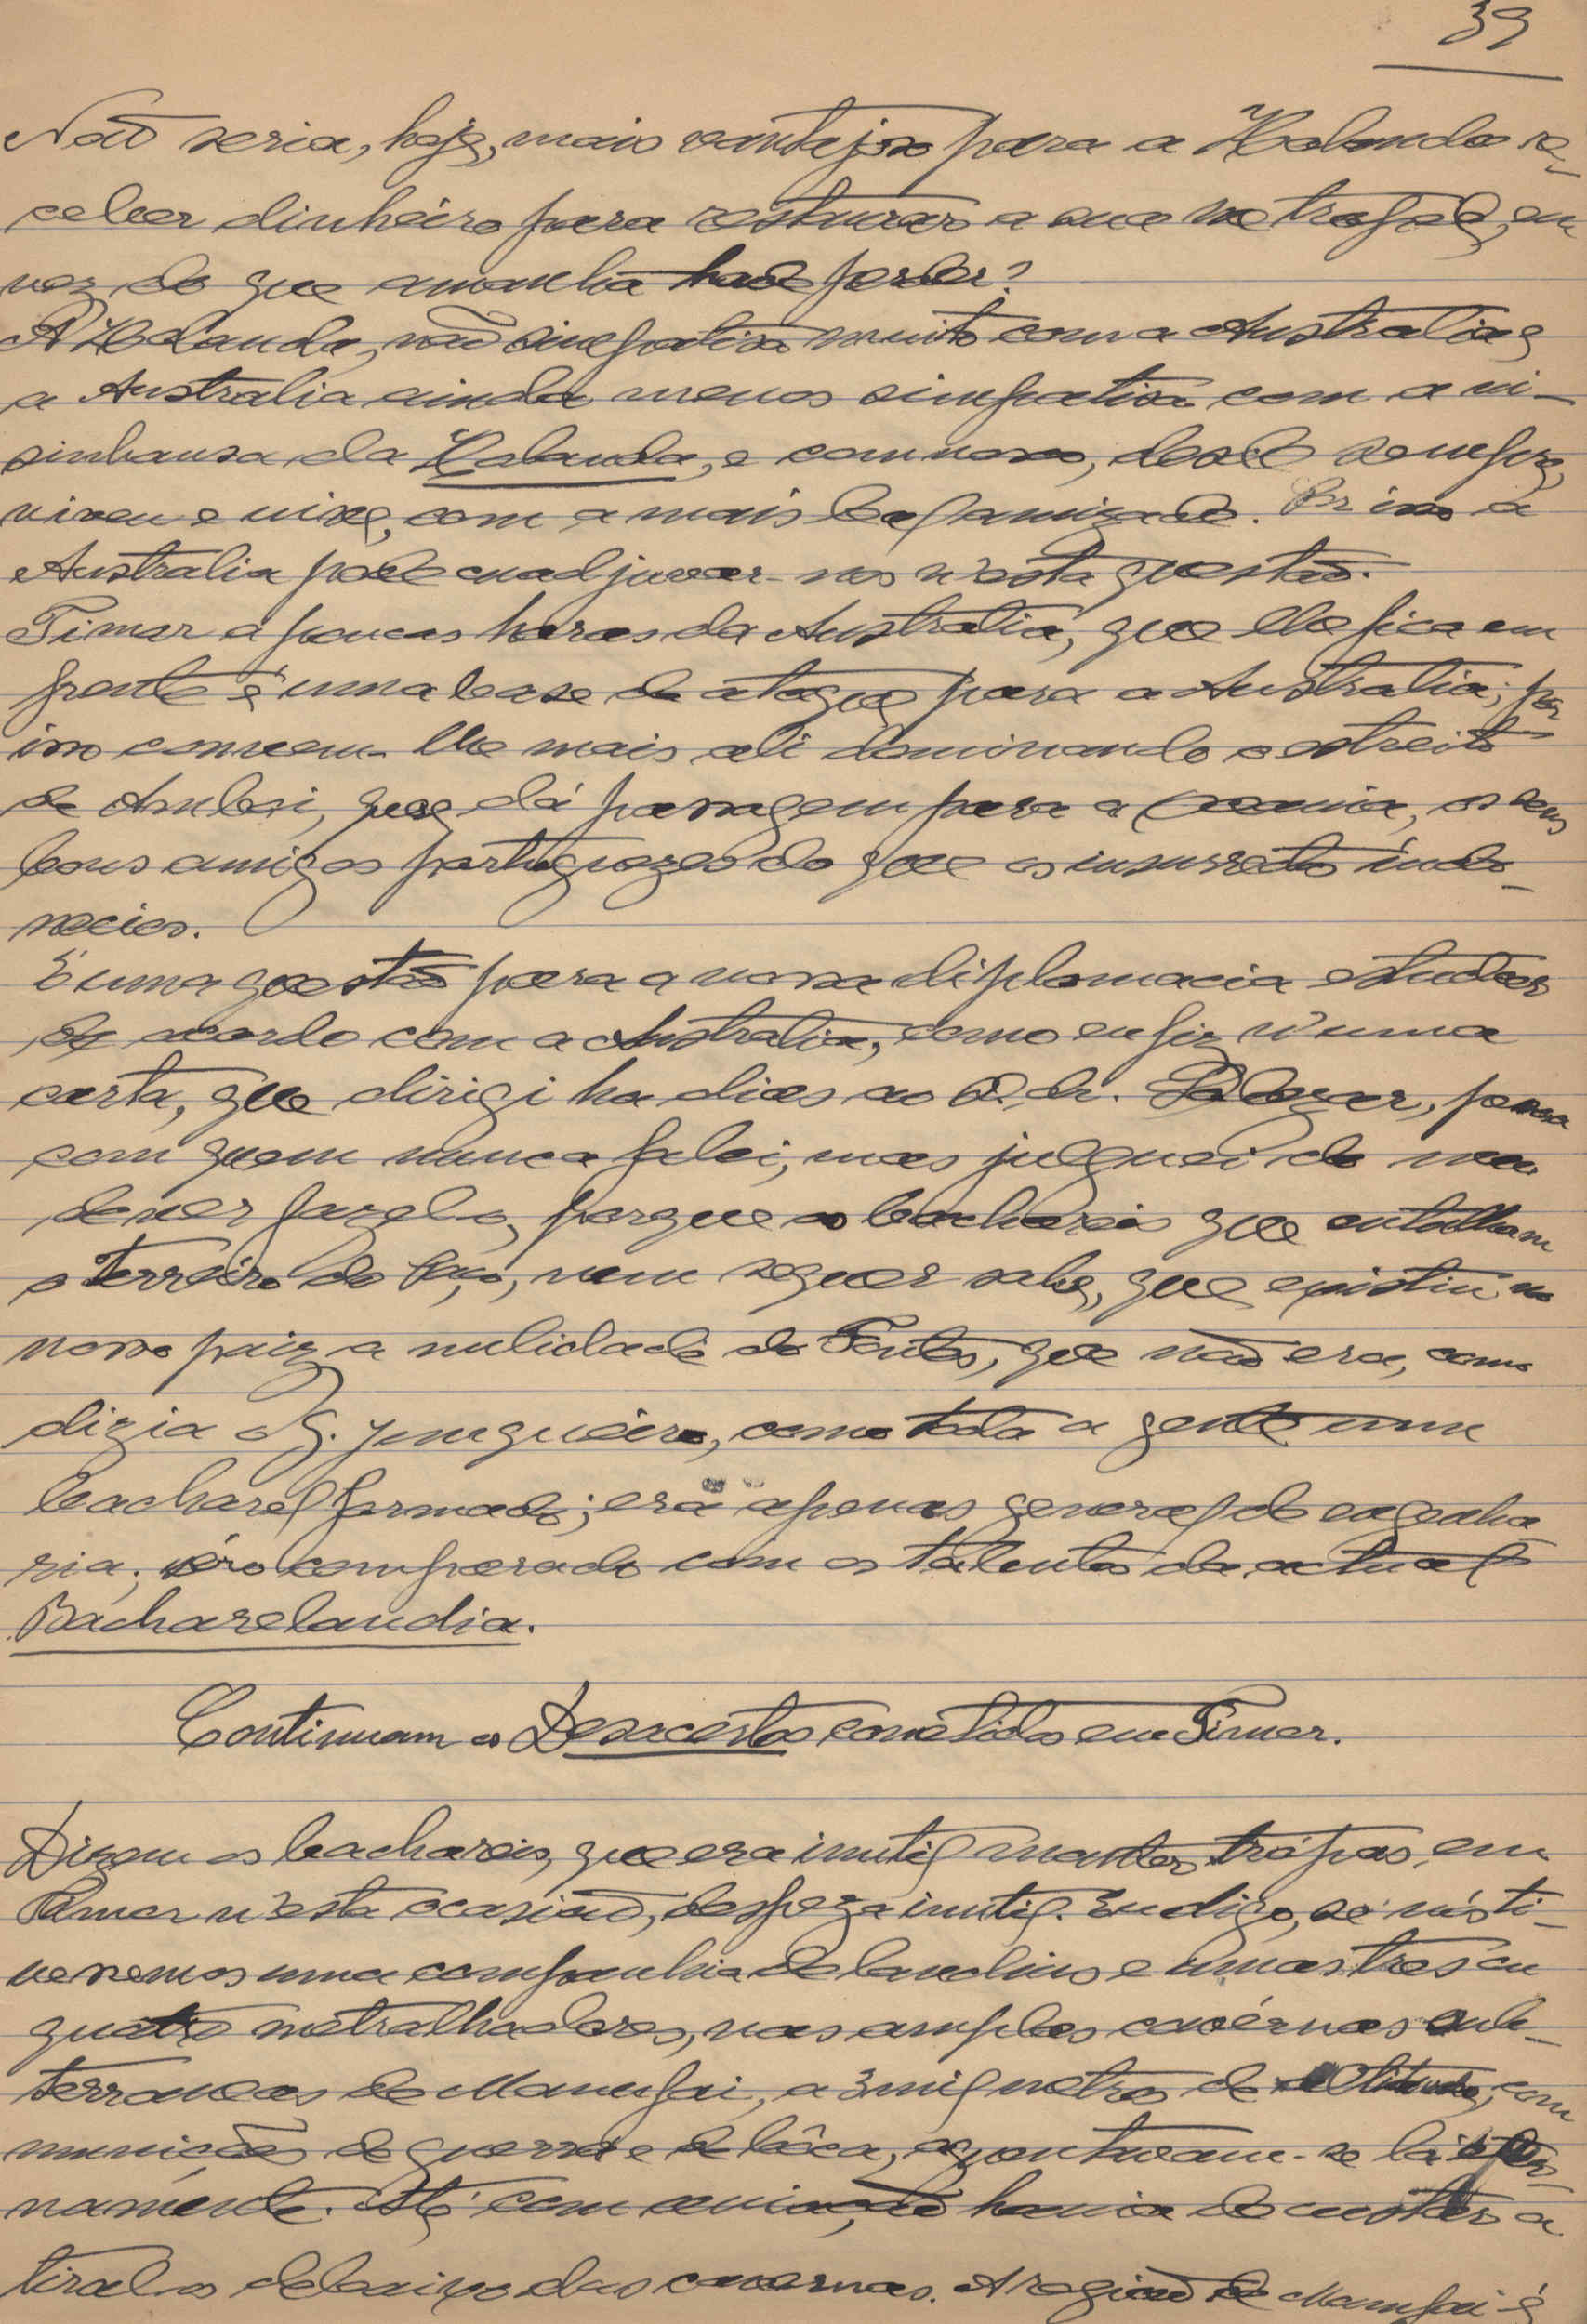 39
Não seria, hoje, mais vantajoso para a Holanda re-
ceber dinheiro para restaurar a sua metropole, em
vez do que amanhã hade perder?
A Holanda, não simpatisa muito com a Australia e
a Australia ainda menos simpatisa com a vi-
sinhansa da Holanda, e comnosco, desde sempre,
viveu e vive, com a mais leal amizade. Por isso a
Australia pode coadjuvar-nos n'esta questão.
Timor a poucas horas da Australia, que lhe fica em
frente é uma base de ataque para a Australia; por
isso convem-lhe mais ali dominando o estreito
de Ambai, que dá passagem para a Oceania, os seus
bons amigos portuguezes do que os insurretos indo-
necios.
É uma questão para a nossa diplomacia estudar
de acordo com a Australia, como eu fiz n'uma
carta, que dirigi ha dias ao S. dr. Salazar, pessoa
com quem nunca falei, mas julguei do meu
dever fazel-o, porque os bachareis que entalham
o Terreiro do Paço, nem sequer sabe, que existiu no
nosso paiz a nulidade do Fontes, que não era, como
dizia o G. Junqueiro, como toda a gente um
bacharel formado; era apenas general de engenha
ria; zéro comparado com os talentos da actual
Bacharelandia.
Continuam os Desacertos cometidos em Timor.
Dizem os bachareis, que era inutil manter trópas em
Timor n'esta ocasião, despeza inutil. Eu digo, se nós ti-
vessemos uma companhia de landins e umas tres ou
quatro metralhadoras, nas amplas cavérnas sub-
terraneas de Manufai, a 3 mil metros de altitude, com
munições de guerra e de bôca, aguentavam-se lá eter-
namente. Até com aviação havia de custar a
tiral-os debaixo das cavernas. A região de Manufai é